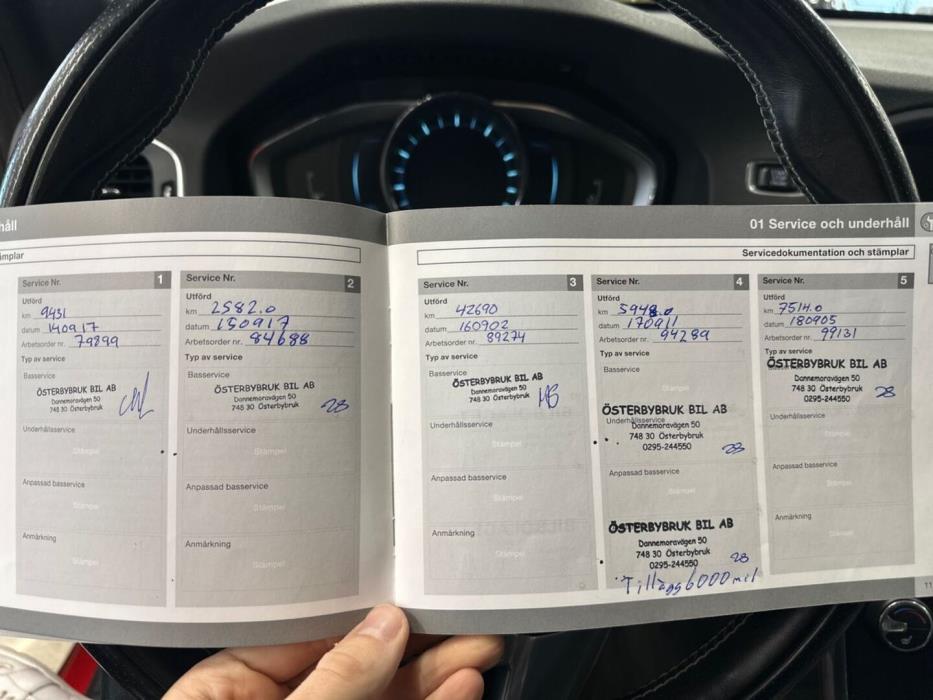 håll
01 Service och underhåll
mplar
Servicedokumentation och stämplar
Service Nr. 1
Utförd
km 9431
datum 140917
Arbetsorder nr. 79899
Typ av service
Basservice
ÖSTERBYBRUK BIL AB
Dannemoravägen 50
748 30 Österbybruk
Underhållsservice
Stämpel
Anpassad basservice
Stämpel
Anmärkning
Stämpel
Service Nr. 2
Utförd
km 2582.0
datum 150917
Arbetsorder nr. 84688
Typ av service
Basservice
ÖSTERBYBRUK BIL AB
Dannemoravägen 50
748 30 Österbybruk 28
Underhållsservice
Stämpel
Anpassad basservice
Anmärkning
Stämpel
Service Nr. 3
Utförd
km 42690
datum 160902
Arbetsorder nr. 89274
Typ av service
Basservice
ÖSTERBYBRUK BIL AB
Dannemoravägen 50
748 30 Österbybruk
Underhållsservice
Stämpel
Anpassad basservice
Stämpel
Anmärkning
Stämpel
Service Nr. 4
Utförd
km 5948.0
datum 170911
Arbetsorder nr. 94289
Typ av service
Basservice
Stämpel
ÖSTERBYBRUK BIL AB
Underhållsservice
Dannemoravägen 50
748 30 Österbybruk
0295-244550 28
Anpassad basservice
Stämpel
ÖSTERBYBRUK BIL AB
Dannemoravägen 50
748 30 Österbybruk
0295-244550 28
Tillägg 6000 mil
Service Nr. 5
Utförd
km 7514.0
datum 180905
Arbetsorder nr. 99131
Typ av service
ÖSTERBYBRUK BIL AB
Dannemoravägen 50
748 30 Österbybruk
0295-244550 28
Underhållsservice
Stämpel
Anpassad basservice
Stämpel
Anmärkning
Stämpel
11